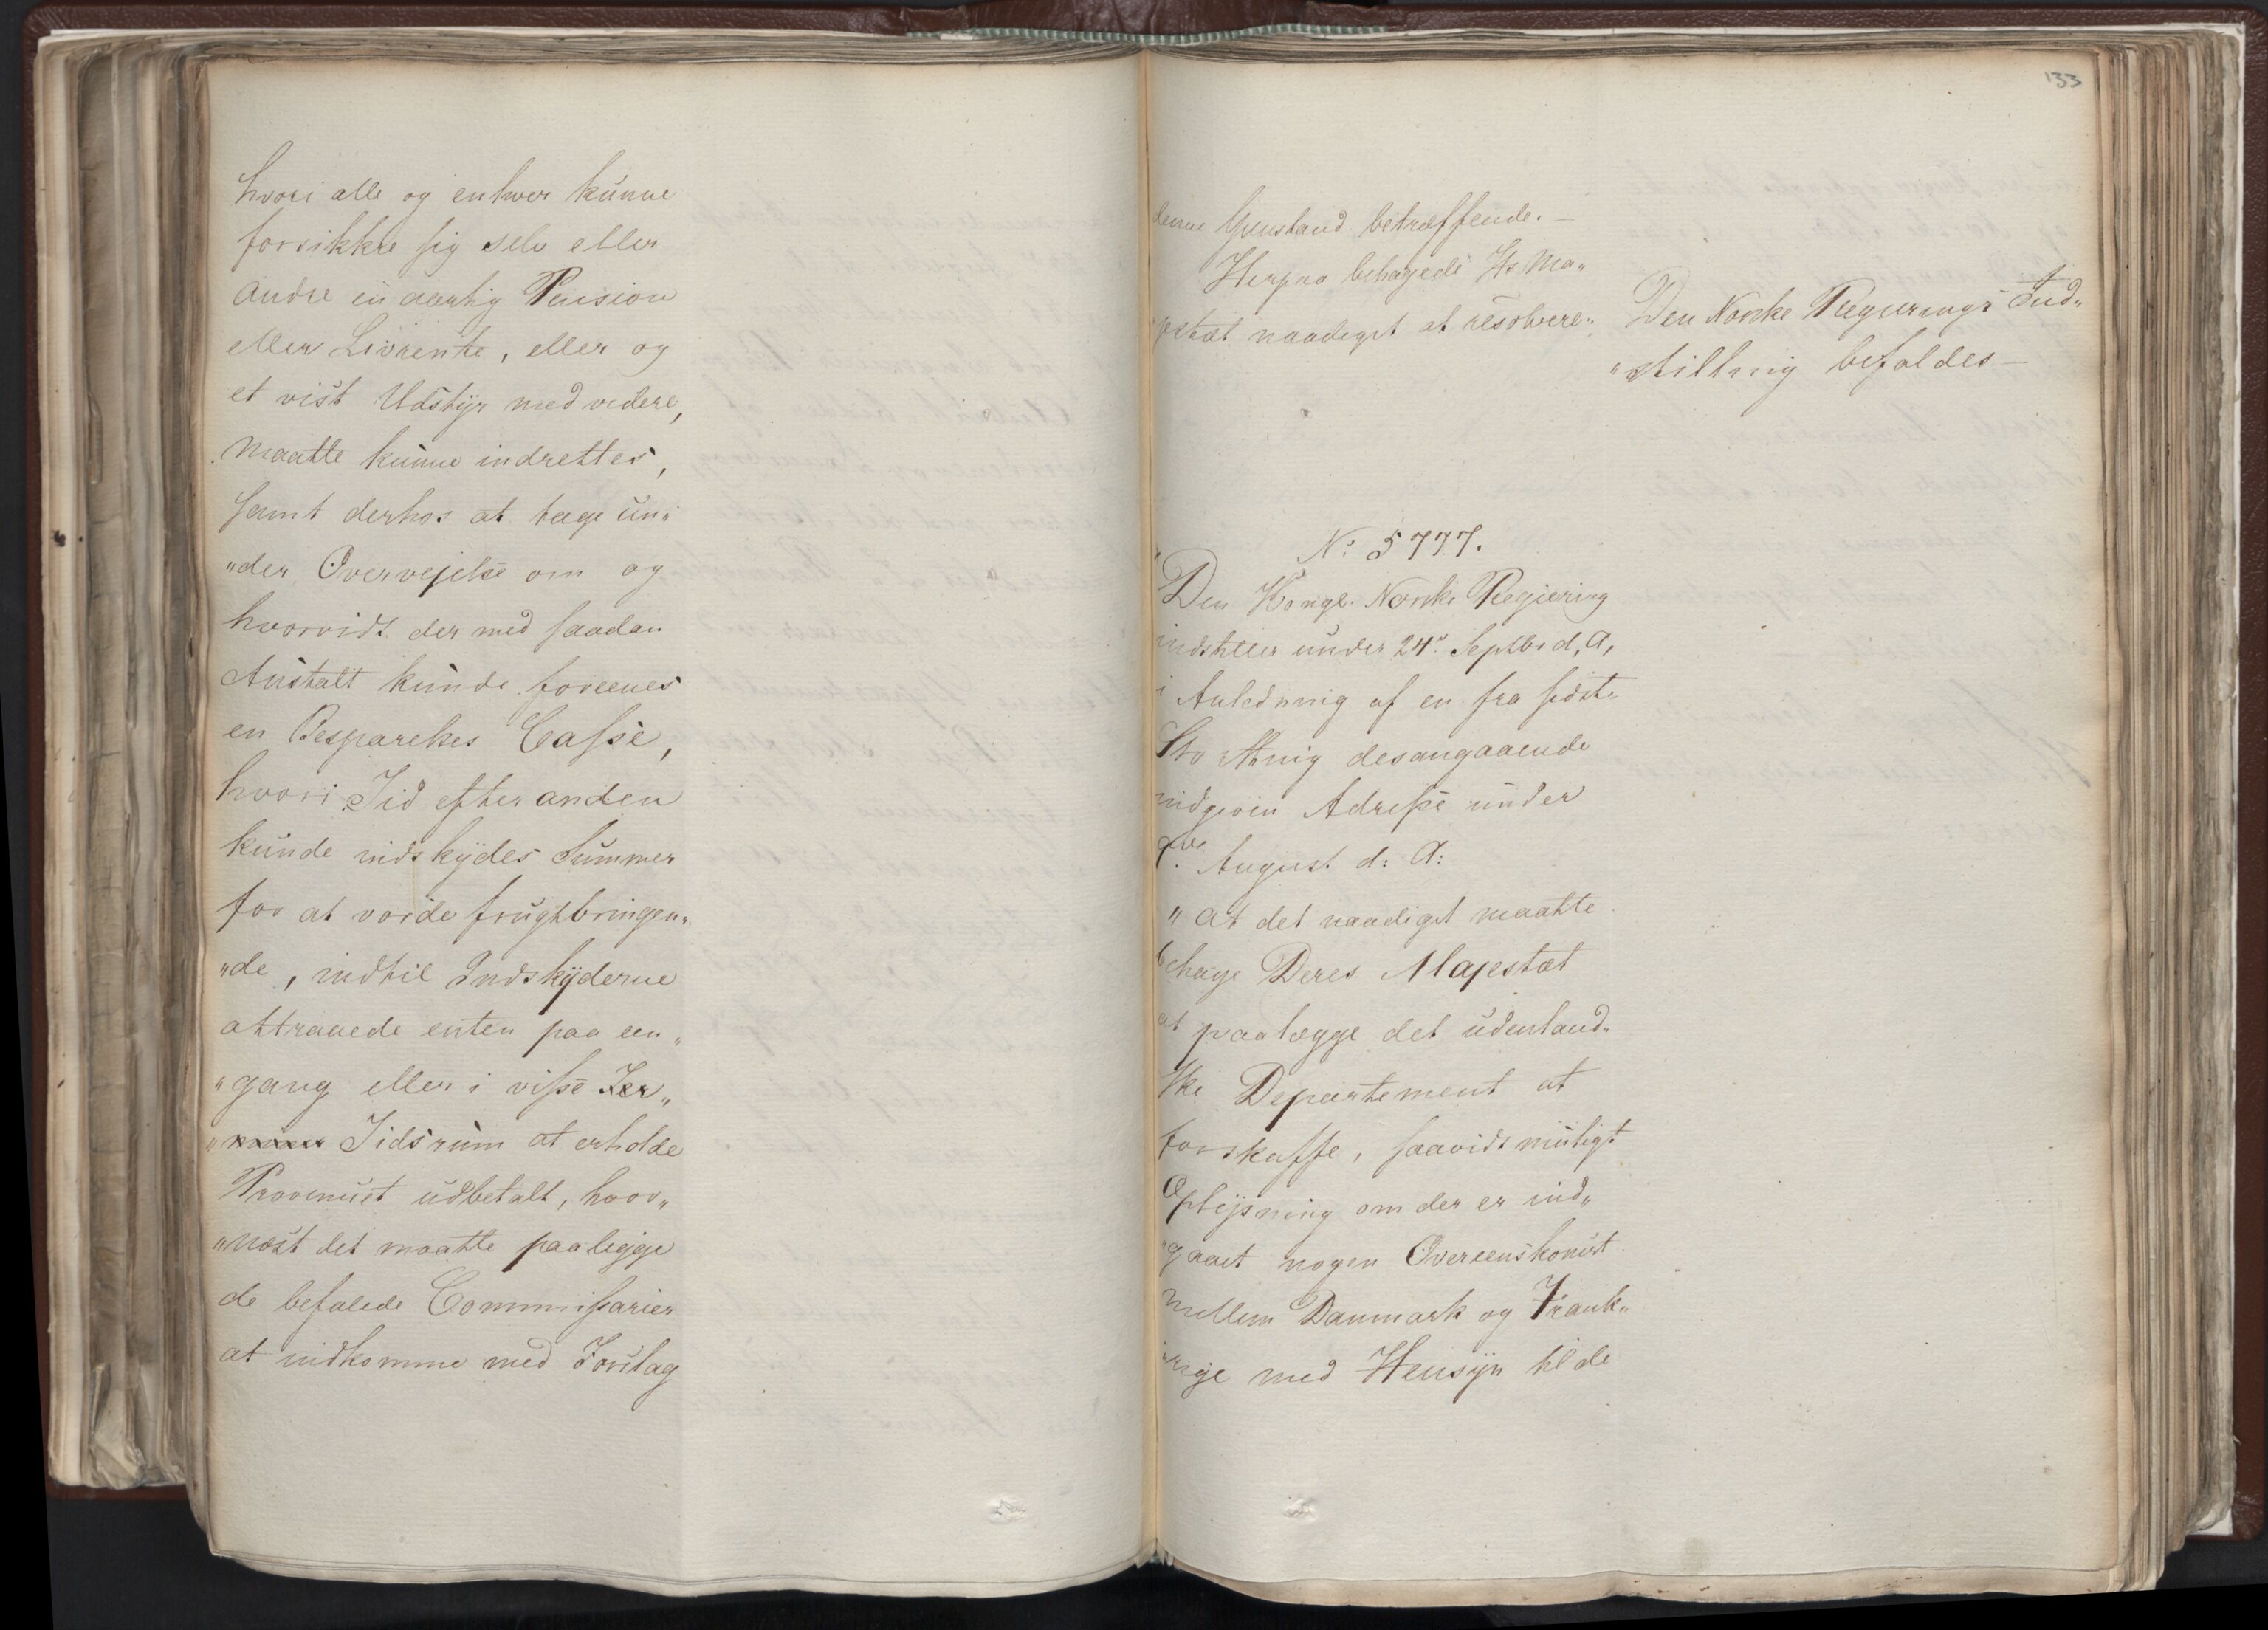 hvori alle og enhver kunne
forsikkre sig selv eller
andre en aarlig Pension
eller Livrente, eller og
et vist Udstÿr med videre,
maatte kunne indrettes,
samt derhos at tage un„
„der Overvejelse om og
hvorvidt der med saadan
Anstalt kunde foreenes
en Besparelses Casse,
hvori Tid efter anden
kunde indskÿdes Summer
for at vorde frugtbringen„
„de, indtil Indskÿderne
attraaede enten paa een„
„gang eller i visse Ter„
„miner Tidsrum at erholde
Provenuet udbetalt, hvor„
„næst det maatte paalegge
de befalede Commissarier
at indkomme med Forslag
133
denne Gjenstand betræffende.—
Herpaa behagede Hs Ma„
jestæt naadigst at resolvere„
Den Norske Regjerings Ind„
„stilling befaldes—
No: 5777.
Den Kongl. Norske Regiering
indstiller under 24de Septbr d, A,
i Anledning af en fra sidste
Storthing desangaaende
indgiven Adresse under
August d: A:
„at det naadigst maatte
behage Deres Majestæt
at paalægge det udenland„
ske Departement at
forskaffe, saavidt muligt
Oplÿsning om der er ind„
„gaaet nogen Overeenskomst
mellem Danmark og Frank„
„rige med Hensÿn til de